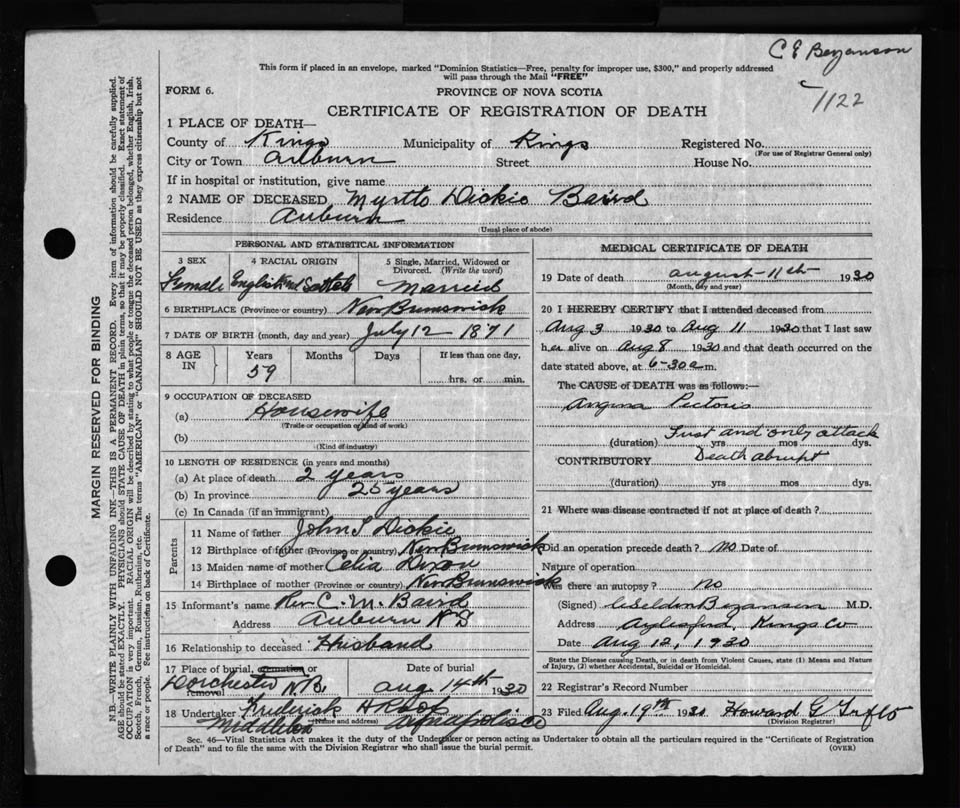 C E Bezanson
This form if placed in an envelope, marked "Dominion Statistics—Free, penalty for improper use, $300," and properly addressed
will pass through the Mail "FREE"
1122
FORM 6.
PROVINCE OF NOVA SCOTIA
CERTIFICATE OF REGISTRATION OF DEATH
1 PLACE OF DEATH—
County of Kings Municipality of Kings Registered No.
(For use of Registrar General only)
City or Town Auburn Street House No.
If in hospital or institution, give name
2 NAME OF DECEASED Myrtle Dickie Baird
Residence Auburn
(Usual place of abode)
PERSONAL AND STATISTICAL INFORMATION
3 SEX 4 RACIAL ORIGIN 5 Single, Married, Widowed or Divorced. (Write the word)
Female English and Scotch Married
6 BIRTHPLACE (Province or country) New Brunswick
7 DATE OF BIRTH (month, day and year) July 12 1871
8 AGE IN Years Months Days If less than one day,
59 hrs. or min.
9 OCCUPATION OF DECEASED
(a) Housewife
(Trade or occupation or kind of work)
(b)
(Kind of industry)
10 LENGTH OF RESIDENCE (in years and months)
(a) At place of death 2 years
(b) In province 25 years
(c) In Canada (if an immigrant)
Parents
11 Name of father John S Dickie
12 Birthplace of father (Province or country) New Brunswick
13 Maiden name of mother Celia Dixon
14 Birthplace of mother (Province or country) New Brunswick
15 Informant's name Rev C. M. Baird
Address Auburn N S
16 Relationship to deceased Husband
17 Place of burial, cremation or removal Date of burial
Dorchester N.B. Aug 14th 1930
18 Undertaker Frederick H
(Name and address)
Middleton Annapolis Co
MEDICAL CERTIFICATE OF DEATH
19 Date of death August 11th 1930
(Month, day and year)
20 I HEREBY CERTIFY that I attended deceased from
Aug 3 1930 to Aug 11 1930 that I last saw
her alive on Aug 8 1930 and that death occurred on the
date stated above, at 6-30 a.m.
The CAUSE of DEATH was as follows:—
Angina Pectoris
First and only attack
(duration) yrs. mos. dys.
CONTRIBUTORY Death abrupt
(duration) yrs. mos. dys.
21 Where was disease contracted if not at place of death?
Did an operation precede death? no Date of
Nature of operation
Was there an autopsy? no
(Signed) C Seldon Bezanson M.D.
Address Aylesford, Kings Co
Date Aug 12, 1930
State the Disease causing Death, or in death from Violent Causes, state (1) Means and Nature of Injury, (2) whether Accidental, Suicidal or Homicidal.
22 Registrar's Record Number
23 Filed Aug. 19th 1930 Howard G
(Division Registrar)
Sec. 46—Vital Statistics Act makes it the duty of the Undertaker or person acting as Undertaker to obtain all the particulars required in the "Certificate of Registration
of Death" and to file the same with the Division Registrar who shall issue the burial permit.
(OVER)
MARGIN RESERVED FOR BINDING
N.B.—WRITE PLAINLY WITH UNFADING INK—THIS IS A PERMANENT RECORD. Every item of information should be carefully supplied.
AGE should be stated EXACTLY. PHYSICIANS should STATE CAUSE OF DEATH in plain terms, so that it may be properly classified. Exact statement of
OCCUPATION is very important. RACIAL ORIGIN will be described by stating to what people or tongue the deceased person belonged, whether English, Irish,
Scotch, French, German, Russian, Ruthenian, etc. The terms "AMERICAN" or "CANADIAN" SHOULD NOT BE USED as they express citizenship but not
a race or people. See instructions on back of Certificate.